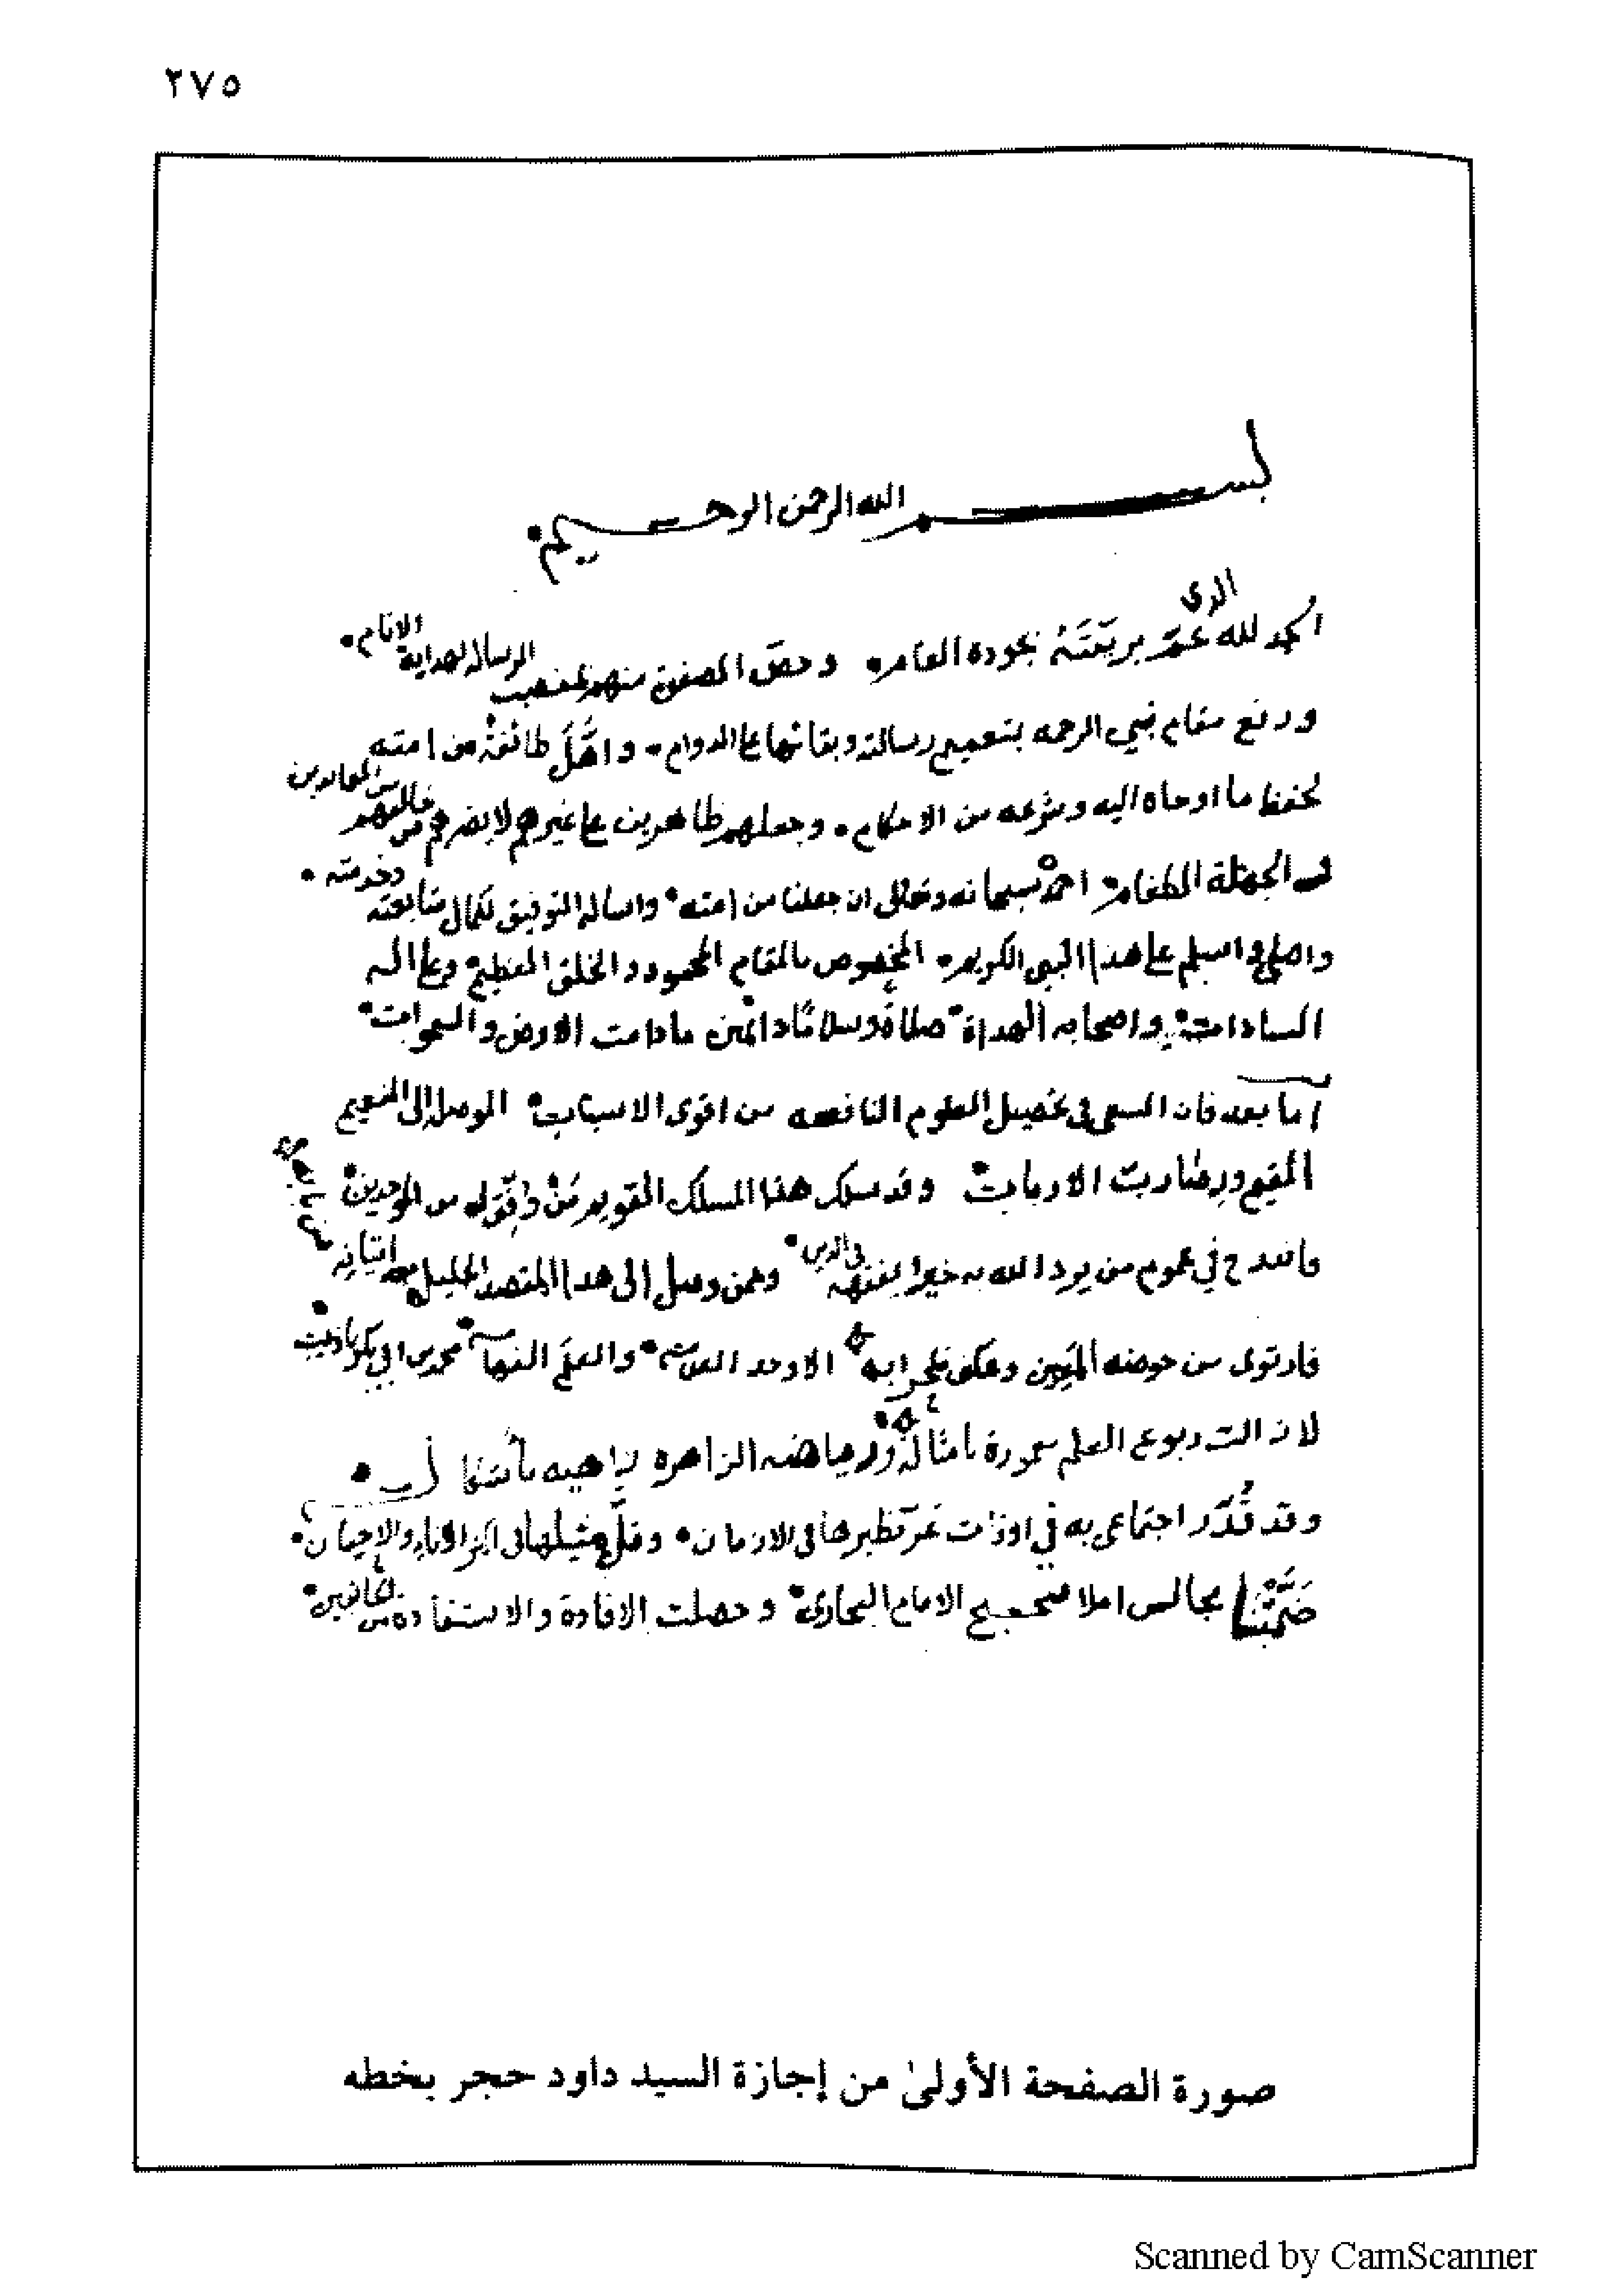 ٢٧٥
بسم الله الرحمن الرحيم
الحمد لله الذي عمّ بريّته بجوده العام وخصّ المصطفين منهم بمنصب الرسالة لهداية الانام
ورفع مقام نبي الرحمه بتعميم رسالته وبقائها على الدوام واهّل طائفة من امته
لحفظ ما اوحاه اليه وشرعه من الاحكام وجعلهم ظاهرين على غيرهم لا يضرهم من خالفهم من المعاندين
الجهلة الطغام احمده سبحانه وتعالى ان جعلنا من امته واساله التوفيق لكمال متابعته وخدمته
واصلي واسلم على هذا النبي الكريم المخصوص بالمقام المحمود والخلق العظيم وعلى اله
السادات واصحابه الهداة صلاة وسلامًا دائمين ما دامت الارض والسموات
اما بعد فان السعى في تحصيل العلوم النافعه من اقوى الاسباب الموصل إلى النعيم
المقيم ورضا رب الارباب وقد سلك هذا المسلك القويم مَنْ وفّق له من الموحدين
فاندرج في عموم من يرد الله به خيرا يفقهه في الدين وممن وصل إلى هذا المقصد الجليل
فارتوى من حوضه المَعِين وعكف بمحرابه الاوحد العلامه والعلَم الفهامه محمد بن ابي بكر باذيب
لا زالت ربوع العلم معمورة بامثاله ورياضه الزاهره
وقد قُدّر اجتماعى به في اوقات عَزّ نظيرها في الازمان وقلّ مثيلها في اكثر الاناء والاحيان
ضَمّتْنا مجالس املا صحيح الامام البخاري وحصلت الافادة والاستفادة من الجانبين
صورة الصفحة الأولىٰ من إجازة السيد داود حجر بخطه
Scanned by CamScanner